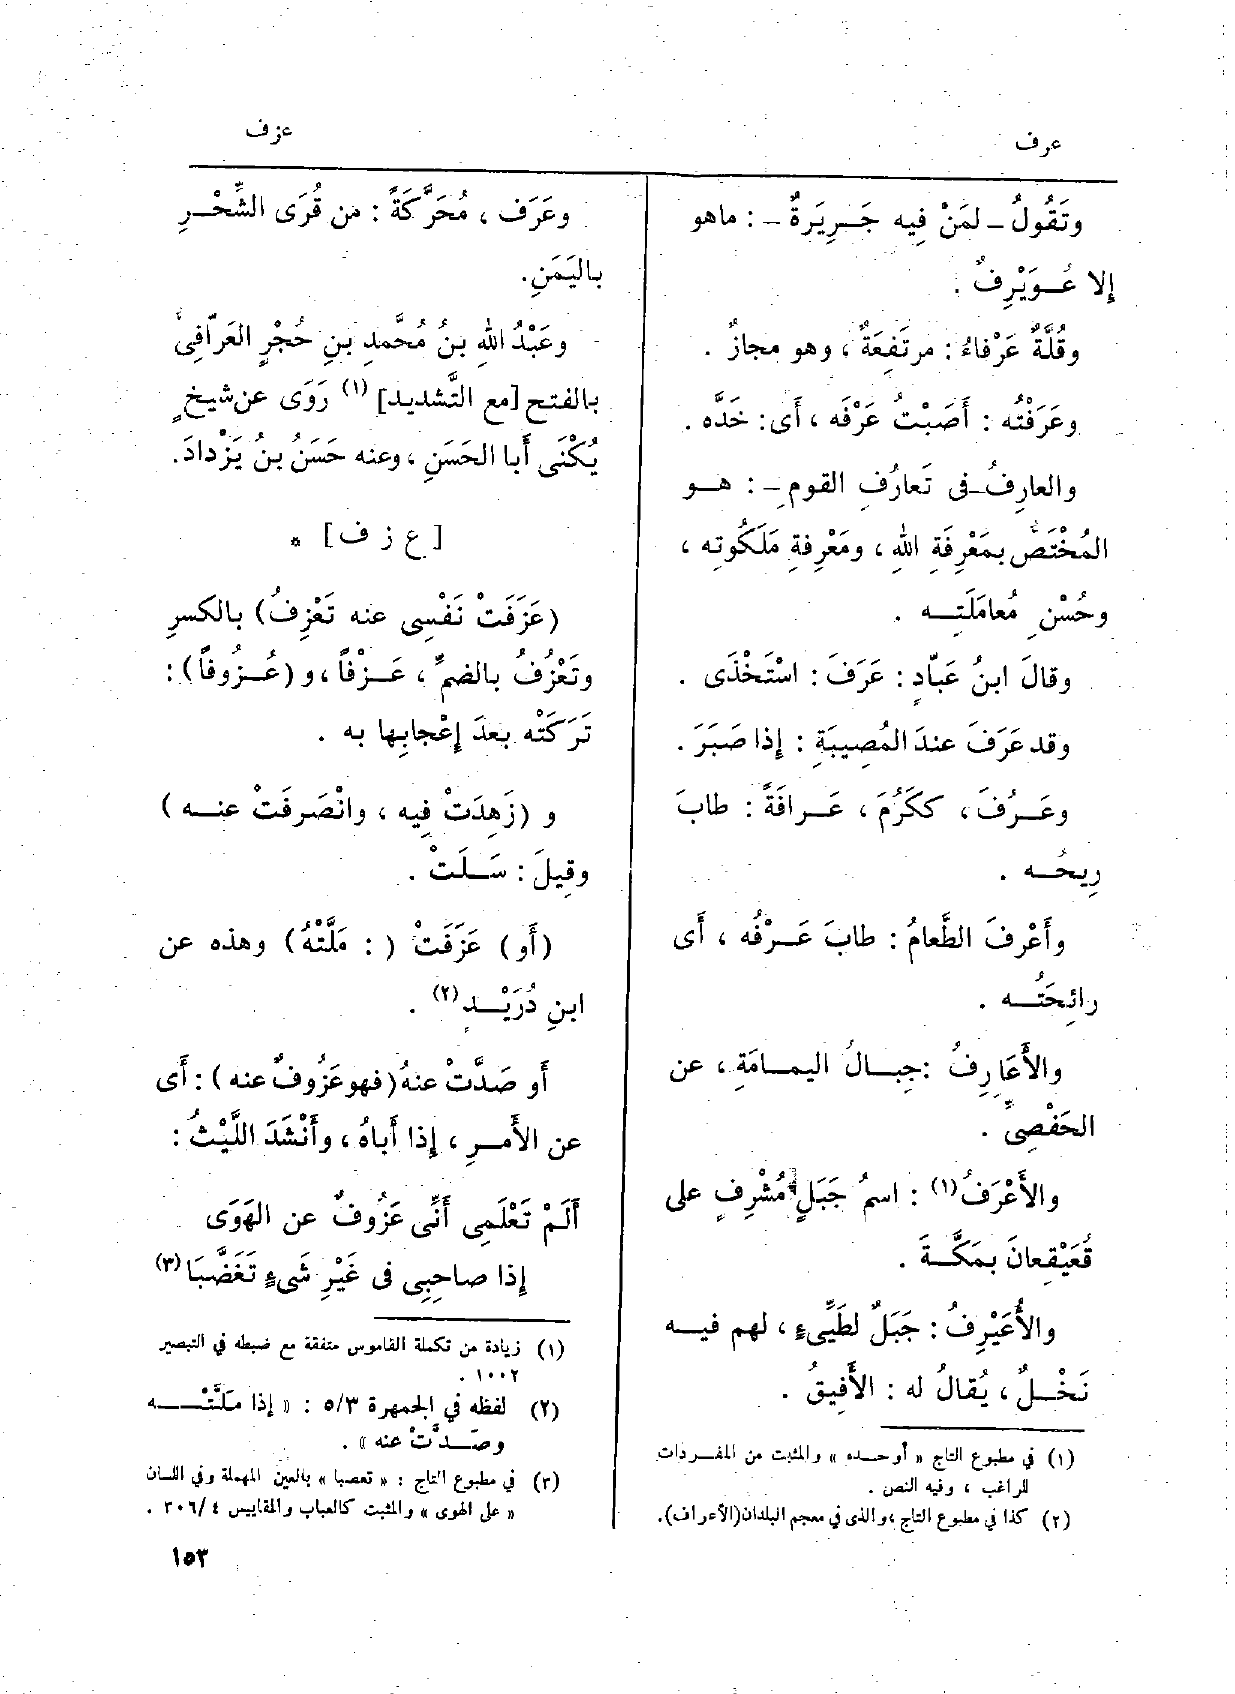 عرف
عزف
وتَقُولُ ـ لمَنْ فِيه جَـرِيَرةٌ ـ : ماهو
إلا عُـوَيْرِفٌ .
وقُلَّةٌ عَرْفاءُ : مرتَفِعَةٌ ، وهو مجازٌ .
وعَرَفْتُه : أَصَبْتُ عَرْفَه ، أَى : خَدَّه .
والعارِفُ ـ فى تَعارُفِ القومِ ـ : هـو
المُخْتَصُّ بمَعْرِفَةِ اللهِ ، ومَعْرِفةِ مَلَكُوتِه ،
وحُسْنِ مُعامَلَتِـه .
وقالَ ابنُ عَبّادٍ : عَرَفَ : اسْتَخْذَى .
وقد عَرَفَ عندَ المُصِيبَةِ : إذا صَبَرَ .
وعَـرُفَ ، ككَرُمَ ، عَـرافَةً : طابَ
رِيحُـه .
وأَعْرفَ الطَّعامُ : طابَ عَـرْفُه ، أَى
رائِحَتُـه .
والأَعَارِفُ : جِبـالُ اليمـامَةِ ، عن
الحَفْصِىِّ .
والأَعْرَفُ(١) : اسمُ جَبَلٍ مُشْرِفٍ على
قُعَيْقِعانَ بمَكَّـةَ .
والأُعَيْرِفُ : جَبَلٌ لطَيِّىءٍ ، لهم فيـه
نَخْـلٌ ، يُقالُ له : الأَفِيقُ .
(١) في مطبوع التاج « أوحـده » والمثبت من المفـردات
للراغب ، وفيه النص .
(٢) كذا في مطبوع التاج ،والذى في معجم البلدان(الأعراف).
وعَرَف ، مُحَرَّكَةً : من قُرَى الشِّحْـرِ
باليَمَنِ.
وعَبْدُ اللهِ بنُ مُحَّمدِ بنِ حُجْرٍ العَرّافِىُّ
بالفتح [مع التَّشديد](١) رَوَى عن شيخٍ
يُكْنَى أَبا الحَسَنِ ، وعنه حَسَنُ بنُ يَزْدادَ.
[ ع ز ف ] *
(عَزَفَتْ نَفْسِى عنه تَعْزِفُ) بالكسرِ
وتَعْزُفُ بالضمِّ ، عَـزْفاً ، و (عُـزُوفاً) :
تَرَكَتْه بعدَ إِعْجابِها به .
و (زَهِدَتْ فِيه ، وانْصَرِفَتْ عنـه )
وقِيلَ : سَـلَتْ .
(أَو) عَزَفَتْ ( : مَلَّتْهُ) وهذه عن
ابنِ دُرَيْـدٍ(٢) .
أَو صَدَّتْ عنهُ (فهو عَزُوفٌ عنه ) : أَى
عن الأَمـرِ ، إذا أَباهُ ، وأَنْشَدَ اللَّيْثُ :
أَلَمْ تَعْلَمِى أَنِّى عَزُوفٌ عن الهَوَى
إذا صاحِبِى فى غَيْرِ شَىءٍ تَغَضَّبَا(٣)
(١) زيادة من تكملة القاموس متفقة مع ضبطه في التبصير
١٠٠٢ .
(٢) لفظه في الجمهرة ٥/٣ : « إذا مَلَّتْـه
وصَـدَّتْ عنه » .
(٣) في مطبوع التاج : « تعصبا » بالعين المهملة وفي اللسان
« على الهوى » والمثبت كالعباب والمقاييس ٣٠٦/٤ .
١٥٣